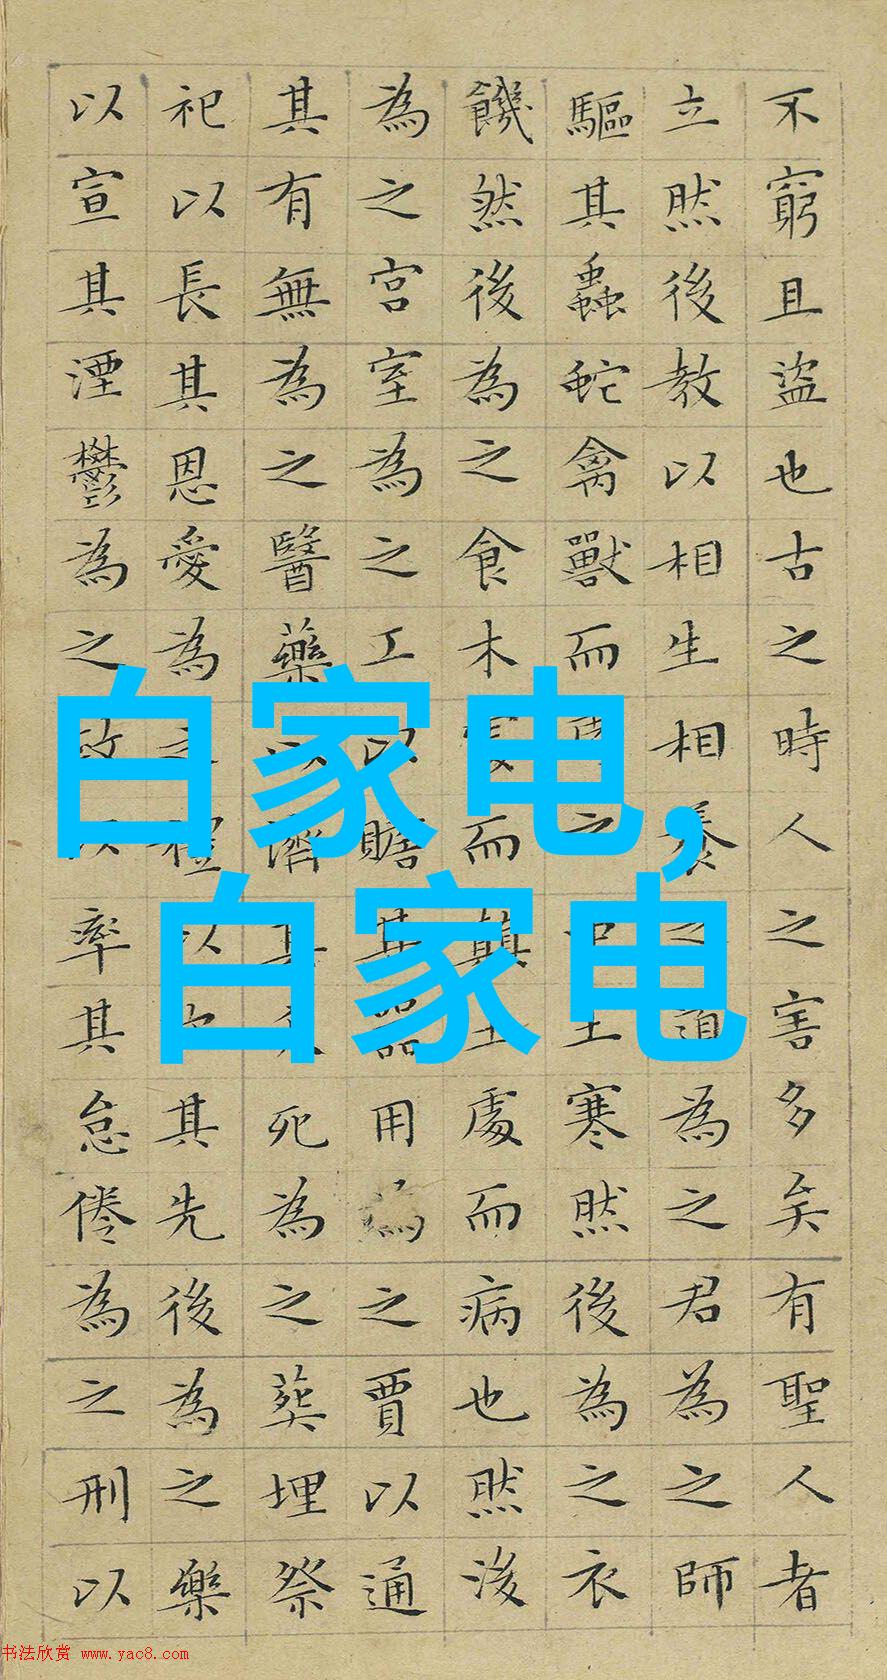 不窮且盜也古之時人之害多矣有聖人者
立然後教以相生相養之道為之君為之師
驅其蟲蛇禽獸而之土寒然後為之衣
饑然後為之食木而顛土處而病也然後
為之宮室為之工以贍其器用為之賈以通
其有無為之醫藥以濟其死為之葬埋祭
祀以長其恩愛為之禮以其先後為之樂
以宣其湮鬱為之政以率其怠倦為之刑以
白家电,
白家电
书法欣赏 www.yac8.com